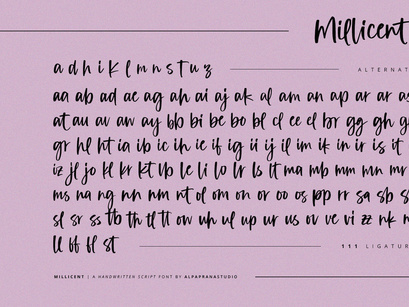 Millicent
a d h i k l m n s t u z
ALTERNAT
aa ab ad ae ag ah ai aj ak al am an ap ar ar as
at au av aw ay bb bi be bo bl cl ee el er gg gh g
gr hl ht ia ib ic ih ie if ig ii ij il im ik in ir is it
iz jl jo kl kr kt lb le li lo lr ls lt ma mb mm mn mr
ms na ng nn nm nt ol om on or oo os pp rr sa sb s
sl sr ss tb th tl tt ow uh ul up ur us ov ve vi zz nk
ll ff fl st
111 LIGATUR
MILLICENT | A HANDWRITTEN SCRIPT FONT BY ALPAPRANASTUDIO